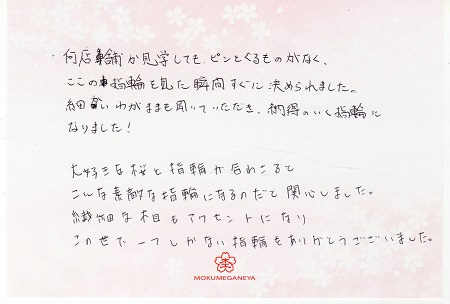 ・何店舗か見学しても、ピンとくるものがなく、
ここの指輪を見た瞬間すぐに決められました。
細かいわがままも聞いていただき、納得のいく指輪に
なりました！
大好きな桜と指輪が合わさると
こんな素敵な指輪になるのだと関心しました。
繊細な木目もアクセントになり
この世で一つしかない指輪をありがとうございました。
MOKUMEGANEYA